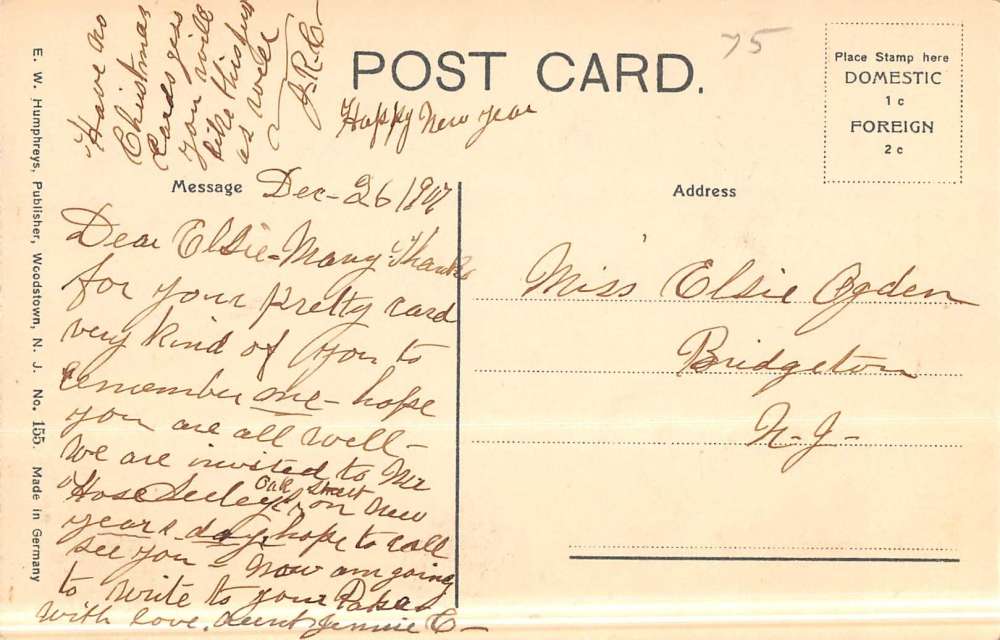 Have no
Christmas
Cards guess
you will
like this just
as well
J.R.C
POST CARD.
75
Happy New year
Place Stamp here
DOMESTIC
1 c
FOREIGN
2 c
Message
Dec-26/1907
Dear Elsie-Many Thanks
for your pretty card
very kind of you to
remember me - hope
you are all well-
We are invited to Mr
Seeley's Oak Street on New
years day, hope to call
see you - Now am going
to write to your Papa
with love. Aunt Jennie C-
Address
Miss Elsie Ogden
Bridgeton
N-J-
E. W. Humphreys, Publisher, Woodstown, N. J. No. 155. Made in Germany